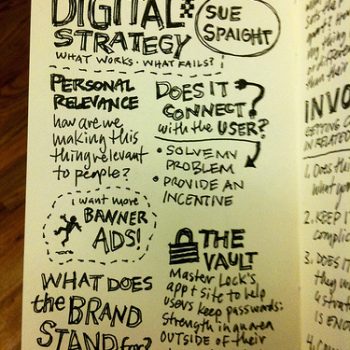 DIGITAL:
STRATEGY
SUE
SPAIGHT
WHAT WORKS. WHAT FAILS?
PERSONAL
RELEVANCE
how are we
making this
thing relevant
to people?
DOES IT
CONNECT
with the USER?
• SOLVE MY
PROBLEM
• PROVIDE AN
INCENTIVE
i want more
BANNER
ADS!
THE
VAULT
Master Lock's
app + site to help
users keep passwords:
strength in an area
OUTSIDE OF their
WHAT DOES
the BRAND
STAND for?
INVO
GETTING
IN RELATED
1. Does this
what you
2. KEEP IT
complic
3. DOES IT
they un
a strat
IS ENO
4.